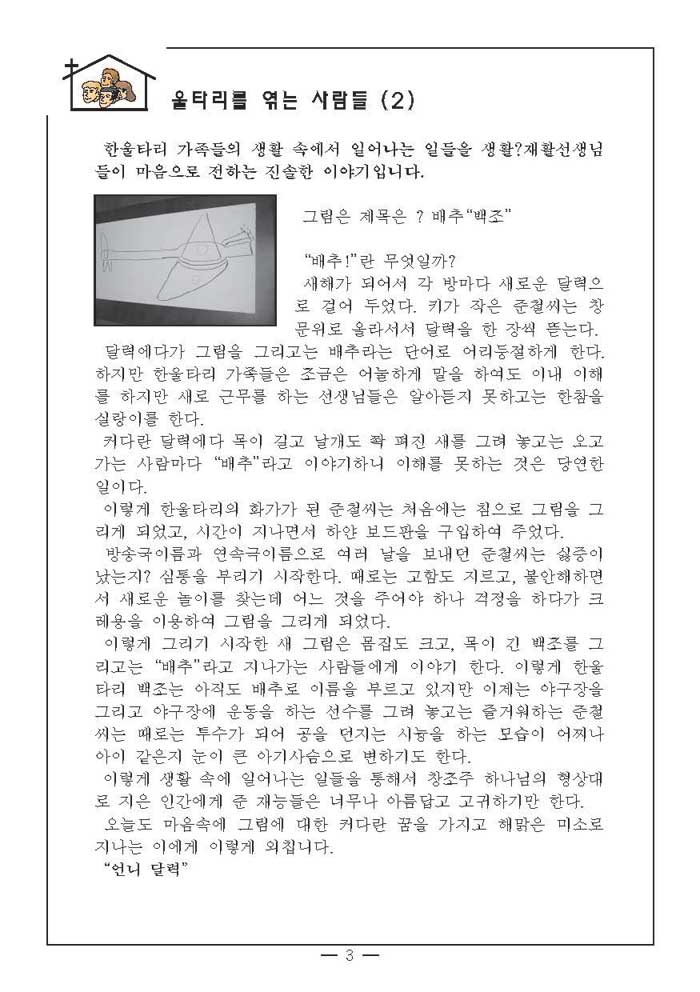 울타리를 엮는 사람들 (2)
한울타리 가족들의 생활 속에서 일어나는 일들을 생활?재활선생님
들이 마음으로 전하는 진솔한 이야기입니다.
그림은 제목은 ? 배추“백조”
“배추!”란 무엇일까?
새해가 되어서 각 방마다 새로운 달력으
로 걸어 두었다. 키가 작은 준철씨는 창
문위로 올라서서 달력을 한 장씩 뜯는다.
달력에다가 그림을 그리고는 배추라는 단어로 어리둥절하게 한다.
하지만 한울타리 가족들은 조금은 어눌하게 말을 하여도 이내 이해
를 하지만 새로 근무를 하는 선생님들은 알아듣지 못하고는 한참을
실랑이를 한다.
커다란 달력에다 목이 길고 날개도 쫙 펴진 새를 그려 놓고는 오고
가는 사람마다 “배추”라고 이야기하니 이해를 못하는 것은 당연한
일이다.
이렇게 한울타리의 화가가 된 준철씨는 처음에는 침으로 그림을 그
리게 되었고, 시간이 지나면서 하얀 보드판을 구입하여 주었다.
방송국이름과 연속극이름으로 여러 날을 보내던 준철씨는 싫증이
났는지? 심통을 부리기 시작한다. 때로는 고함도 지르고, 불안해하면
서 새로운 놀이를 찾는데 어느 것을 주어야 하나 걱정을 하다가 크
레용을 이용하여 그림을 그리게 되었다.
이렇게 그리기 시작한 새 그림은 몸집도 크고, 목이 긴 백조를 그
리고는 “배추”라고 지나가는 사람들에게 이야기 한다. 이렇게 한울
타리 백조는 아직도 배추로 이름을 부르고 있지만 이제는 야구장을
그리고 야구장에 운동을 하는 선수를 그려 놓고는 즐거워하는 준철
씨는 때로는 투수가 되어 공을 던지는 시늉을 하는 모습이 어찌나
아이 같은지 눈이 큰 아기사슴으로 변하기도 한다.
이렇게 생활 속에 일어나는 일들을 통해서 창조주 하나님의 형상대
로 지은 인간에게 준 재능들은 너무나 아름답고 고귀하기만 한다.
오늘도 마음속에 그림에 대한 커다란 꿈을 가지고 해맑은 미소로
지나는 이에게 이렇게 외칩니다.
“언니 달력”
― 3 ―